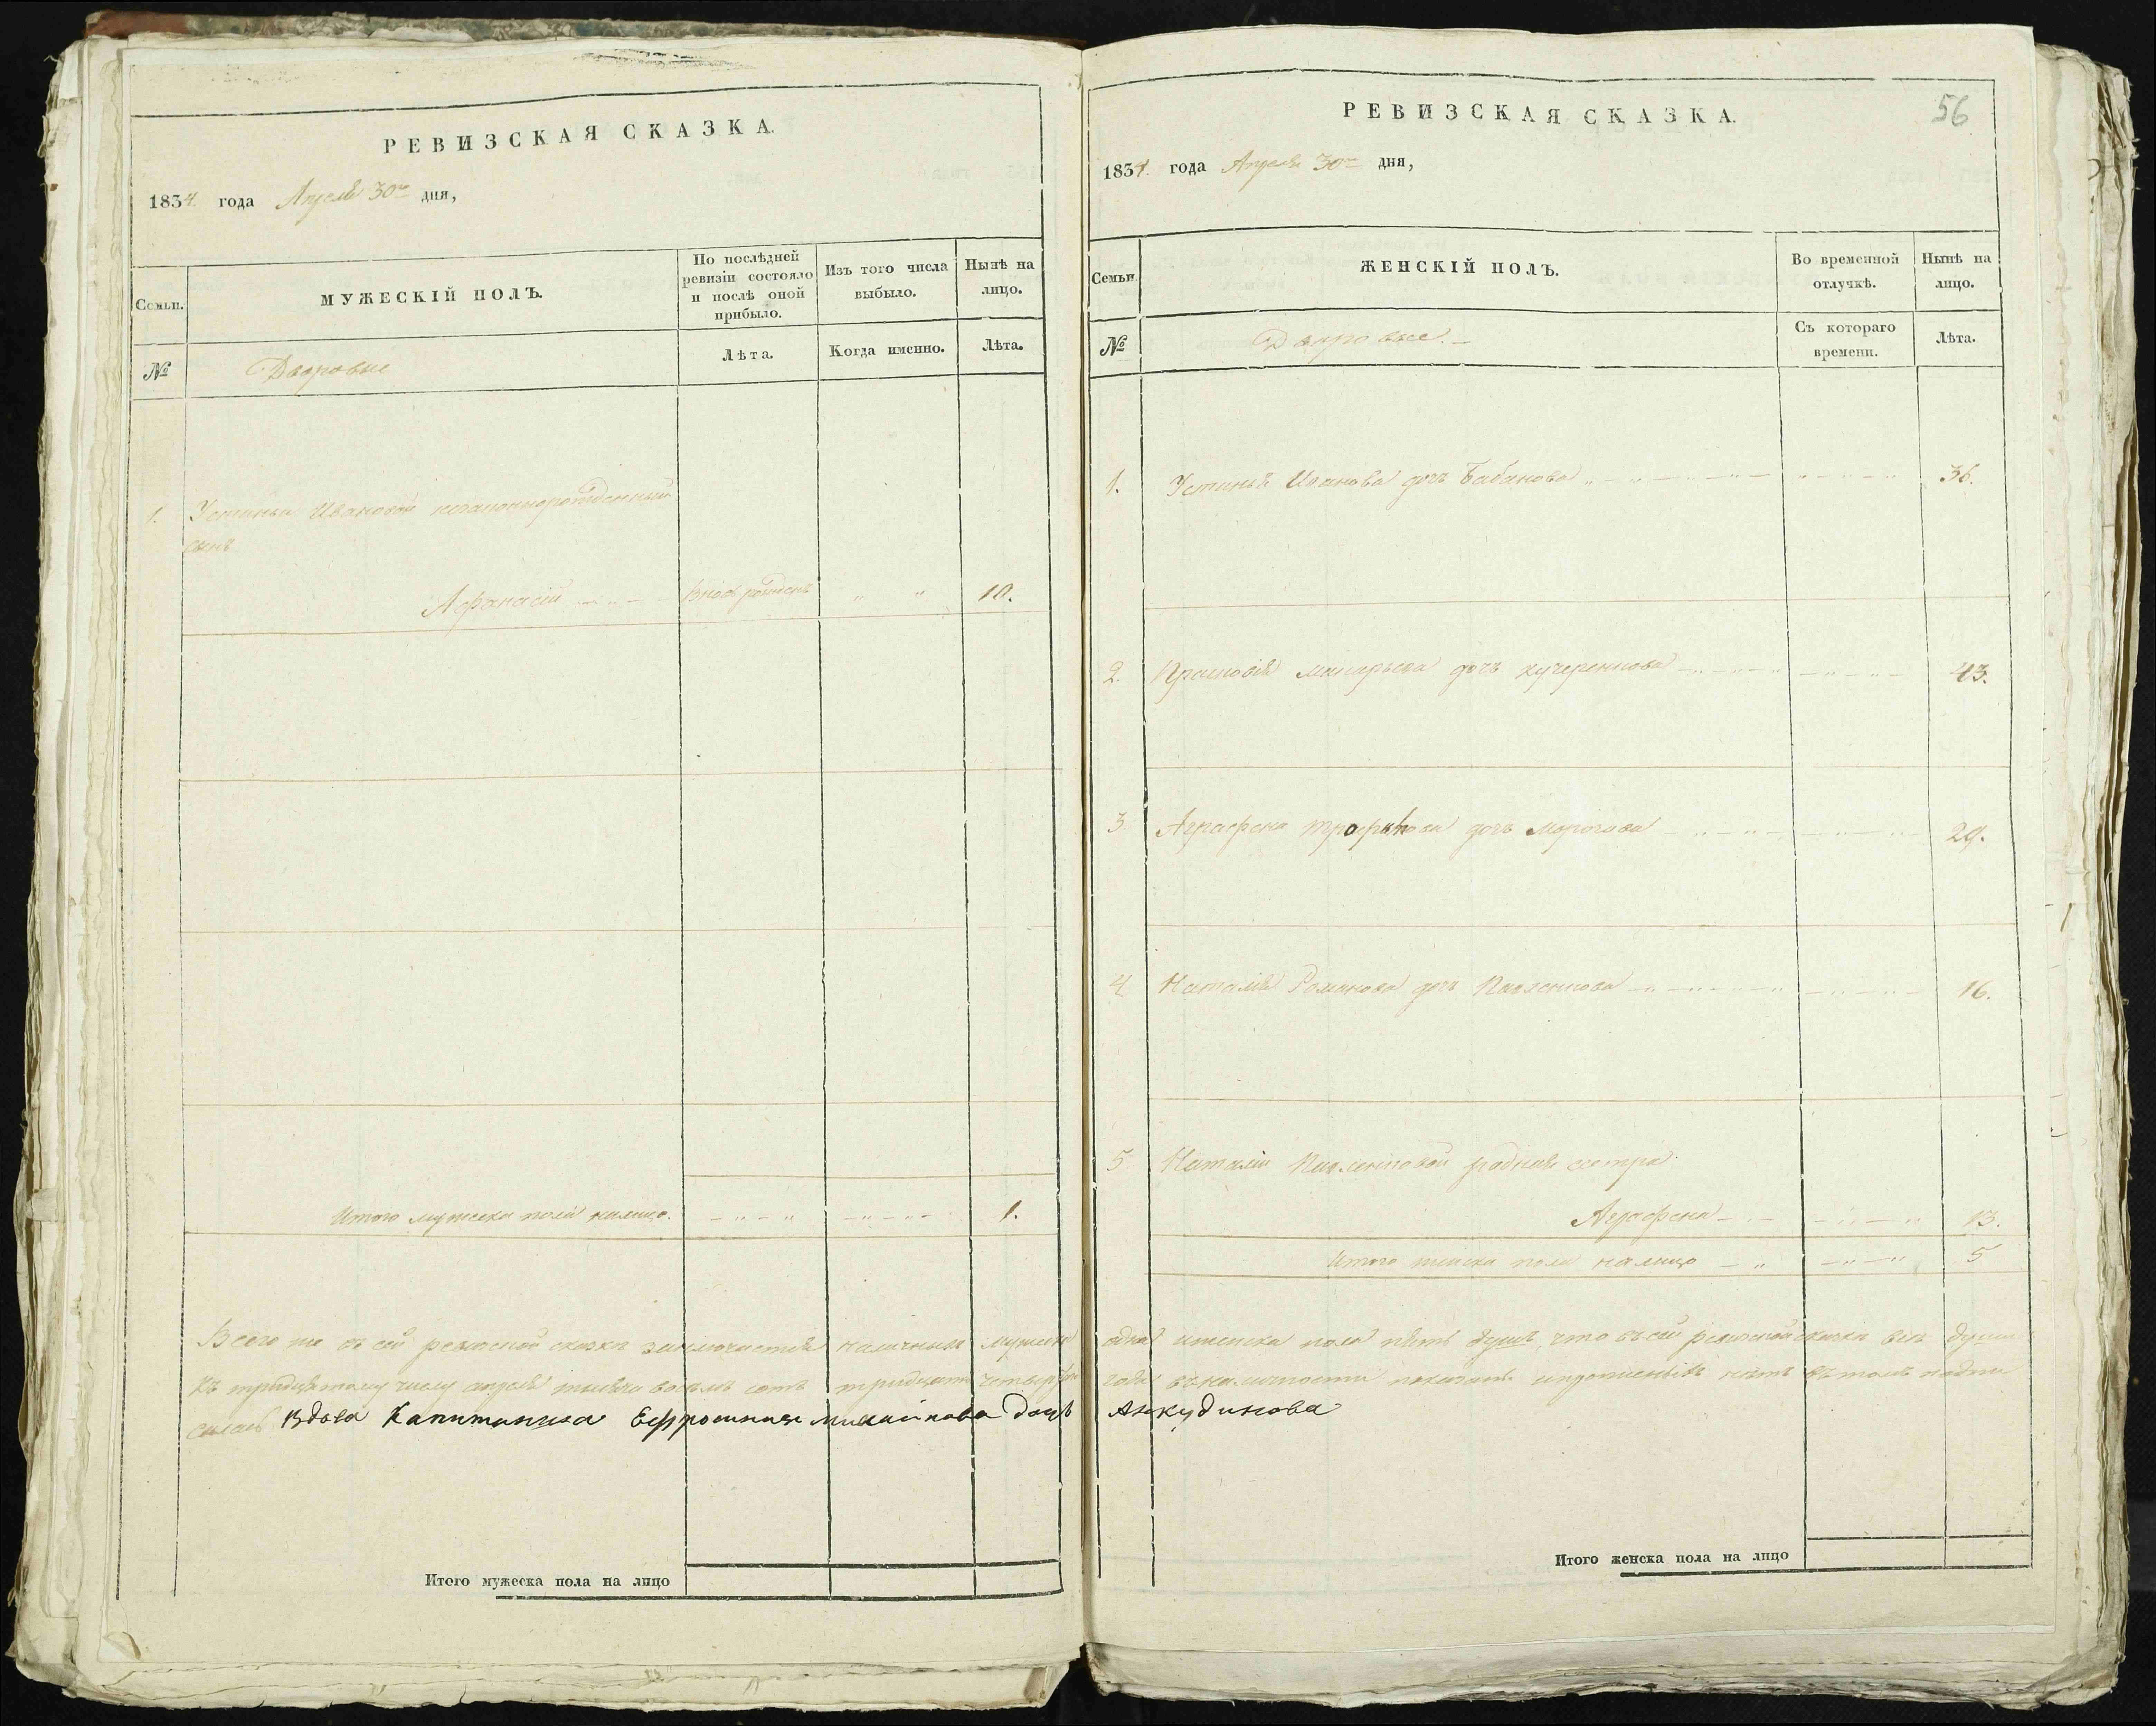 РЕВИЗСКАЯ СКАЗКА.
1834 года Апреля 30го дня,
Семьи.
МУЖЕСКІЙ ПОЛЪ.
По послѣдней ревизіи состояло и послѣ оной прибыло.
Изъ того числа выбыло.
Нынѣ на лицо.
№
Дворовые
Лѣта.
Когда именно.
Лѣта.
1. Устиньи Ивановой незаконнорожденный
сынъ
Афанасій вновь рожденъ " " 10.
Итого мужеска пола налицо. 1.
Итого мужеска пола на лицо
РЕВИЗСКАЯ СКАЗКА.
56
1834. года Апреля 30го дня,
Семьи.
ЖЕНСКІЙ ПОЛЪ.
Во временной отлучкѣ.
Нынѣ на лицо.
№
Дворовые.
Съ котораго времени.
Лѣта.
1. Устинья Иванова дочь Бабанова 36.
2. Прасковія дочь кучеренкова 43.
3. Аграфена дочь 29.
4 Наталія Романова дочь Павленкова 16.
5 Наталіи Павленковой родная сестра:
Аграфена 13.
Итого женска пола налицо 5
Всего же въ сей ревизской сказкѣ заключается наличныхъ мужска одна и женска пола пять душъ, что въ сей ревизской сказкѣ всѣ души
къ тридцатому числу апреля тысяча восемь сотъ тридцать четвертаго года въ наличности показаны и прописныхъ нѣтъ въ томъ подпи
салась Вдова Капитанша Ефросинья Михайлова дочь Анкудинова